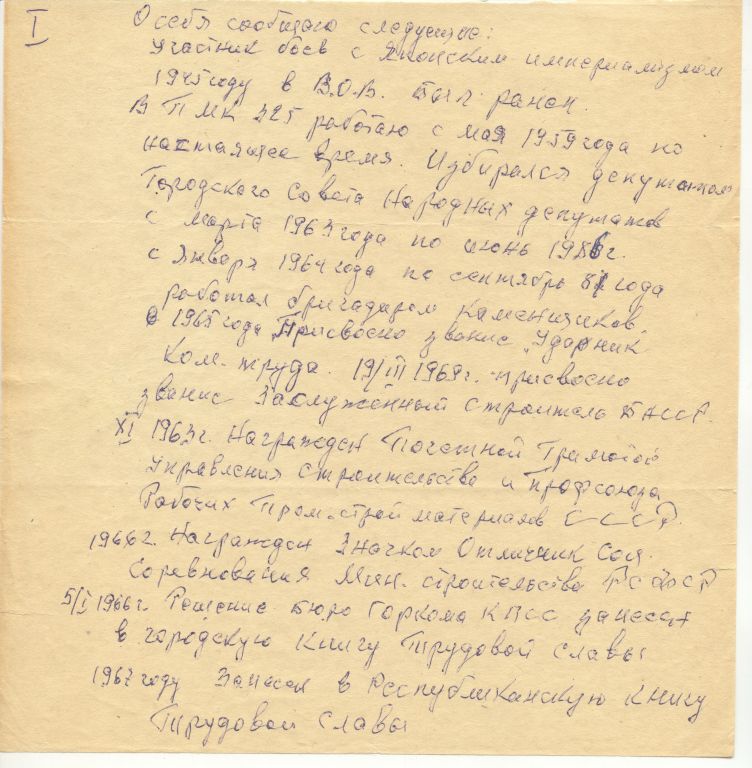 I
О себя сообщаю следующие:
Участник боев с Японским империализмом
1945 году в В.О.В. был ранен.
В ПМК 325 работаю с мая 1959 года по
настаящее время. Избирался депутатом
Городского Совета Народных депутатов
с марта 1963 года по июнь 198 г.
с Января 1964 года по сентябрь 81 года
работал бригадиром каменщиков
с 1965 года „Присвоено звание „Ударник
Ком. труда. 19/III 1969г. присвоено
звание Заслуженный строитель БАССР.
XI 1963г. Награжден Почетной Грамотой
Управления строительства и профсоюза
Рабочих Пром-строй материалов СССР.
1966г. Награжден Значком Отличник Соц.
Соревнования Мин. строительства РСФСР
5/I 1966г. Решение бюро Горкома КПСС занесен
в городскую Книгу Трудовой Славы
1967 году Занесен в Республиканскую книгу
Трудовой Славы